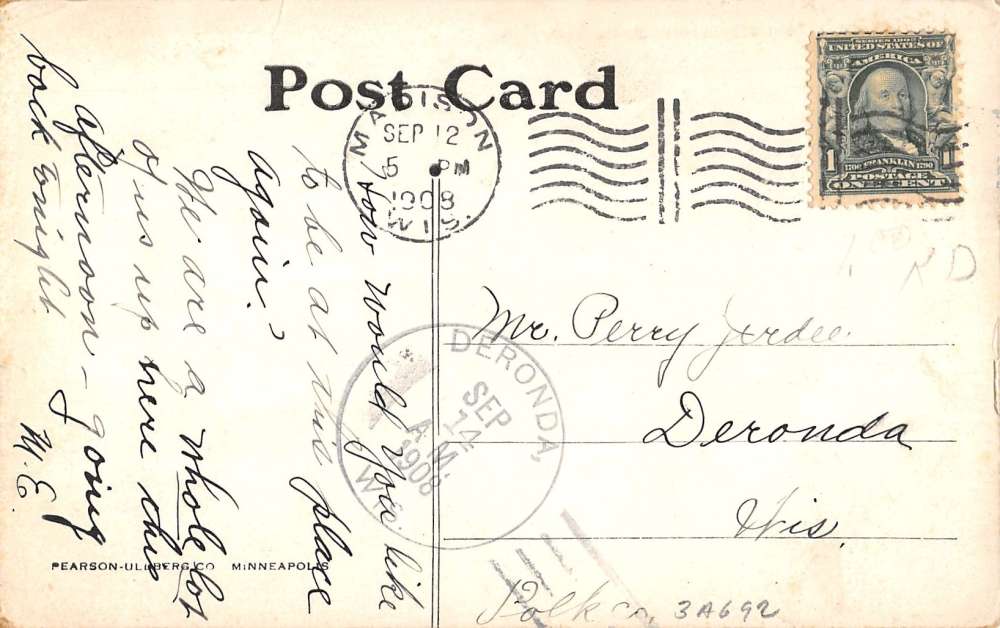 Post Card
MADISON
SEP 12
5 PM
1908
WIS.
SERIES 1902
UNITED STATES OF
AMERICA
1 1706 FRANKLIN 1790 1
POSTAGE
ONE CENT
How would you like
to be at this place
again?
We are a whole lot
of us up here this
afternoon - going
back tonight
M. E.
RD
Mr. Perry Jerdee
Deronda
Wis.
Polk co.
3A692
DERONDA,
SEP
14
A.M.
1908
WIS.
PEARSON-ULLBERG CO MINNEAPOLIS